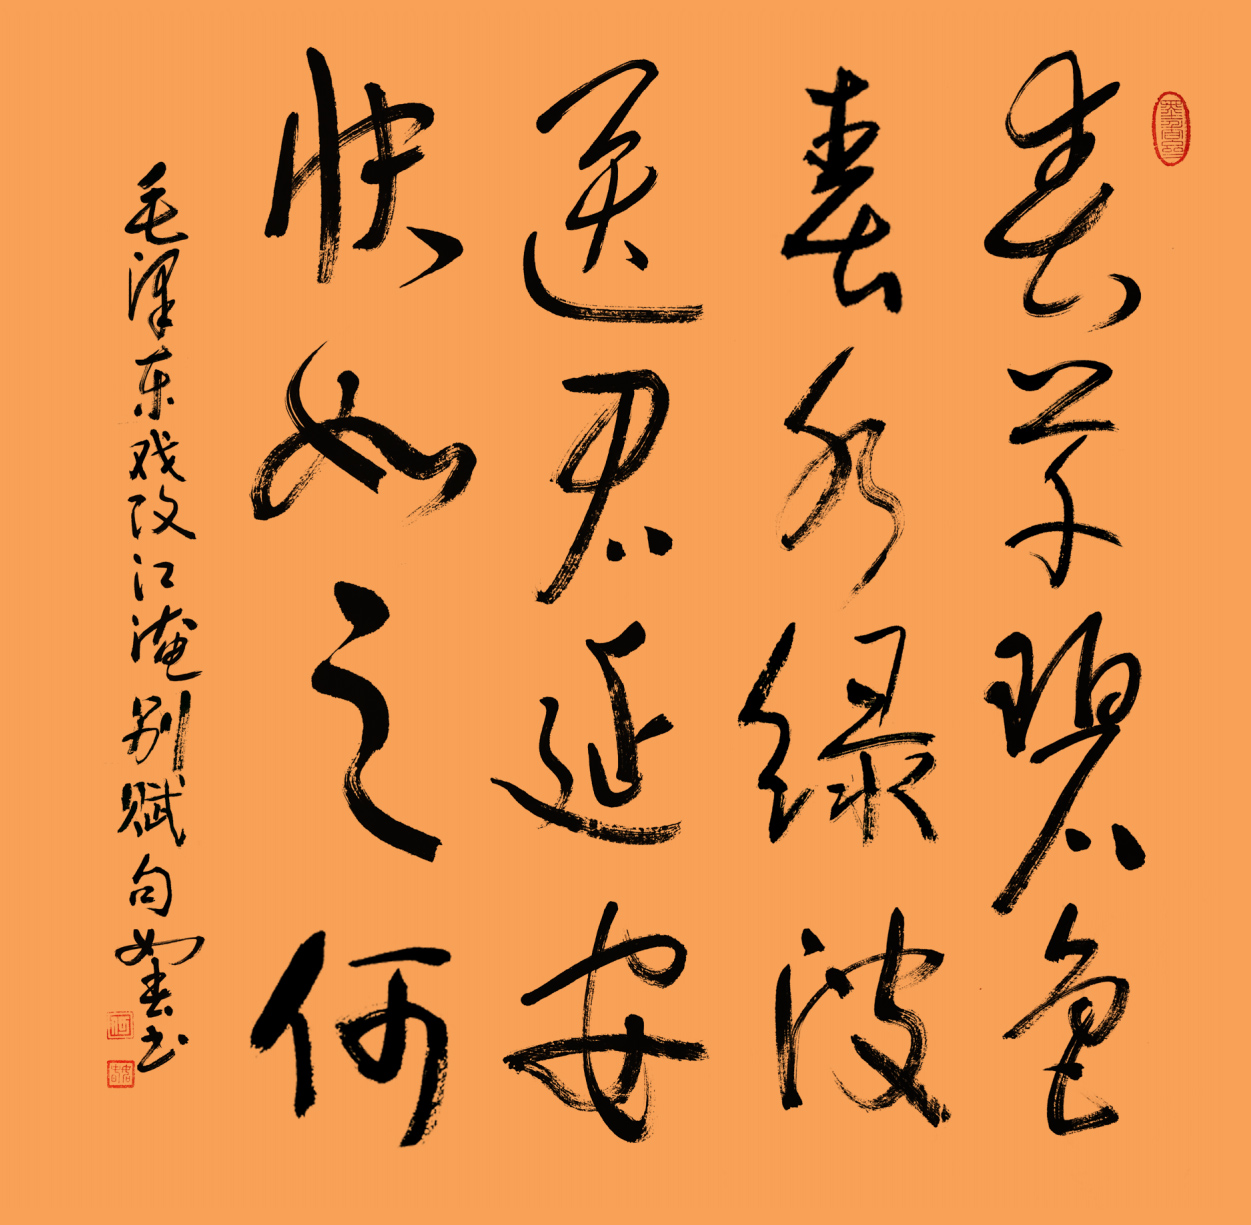 春草碧色
春水绿波
送君延安
快如之何
毛泽东戏改江淹别赋句如春书